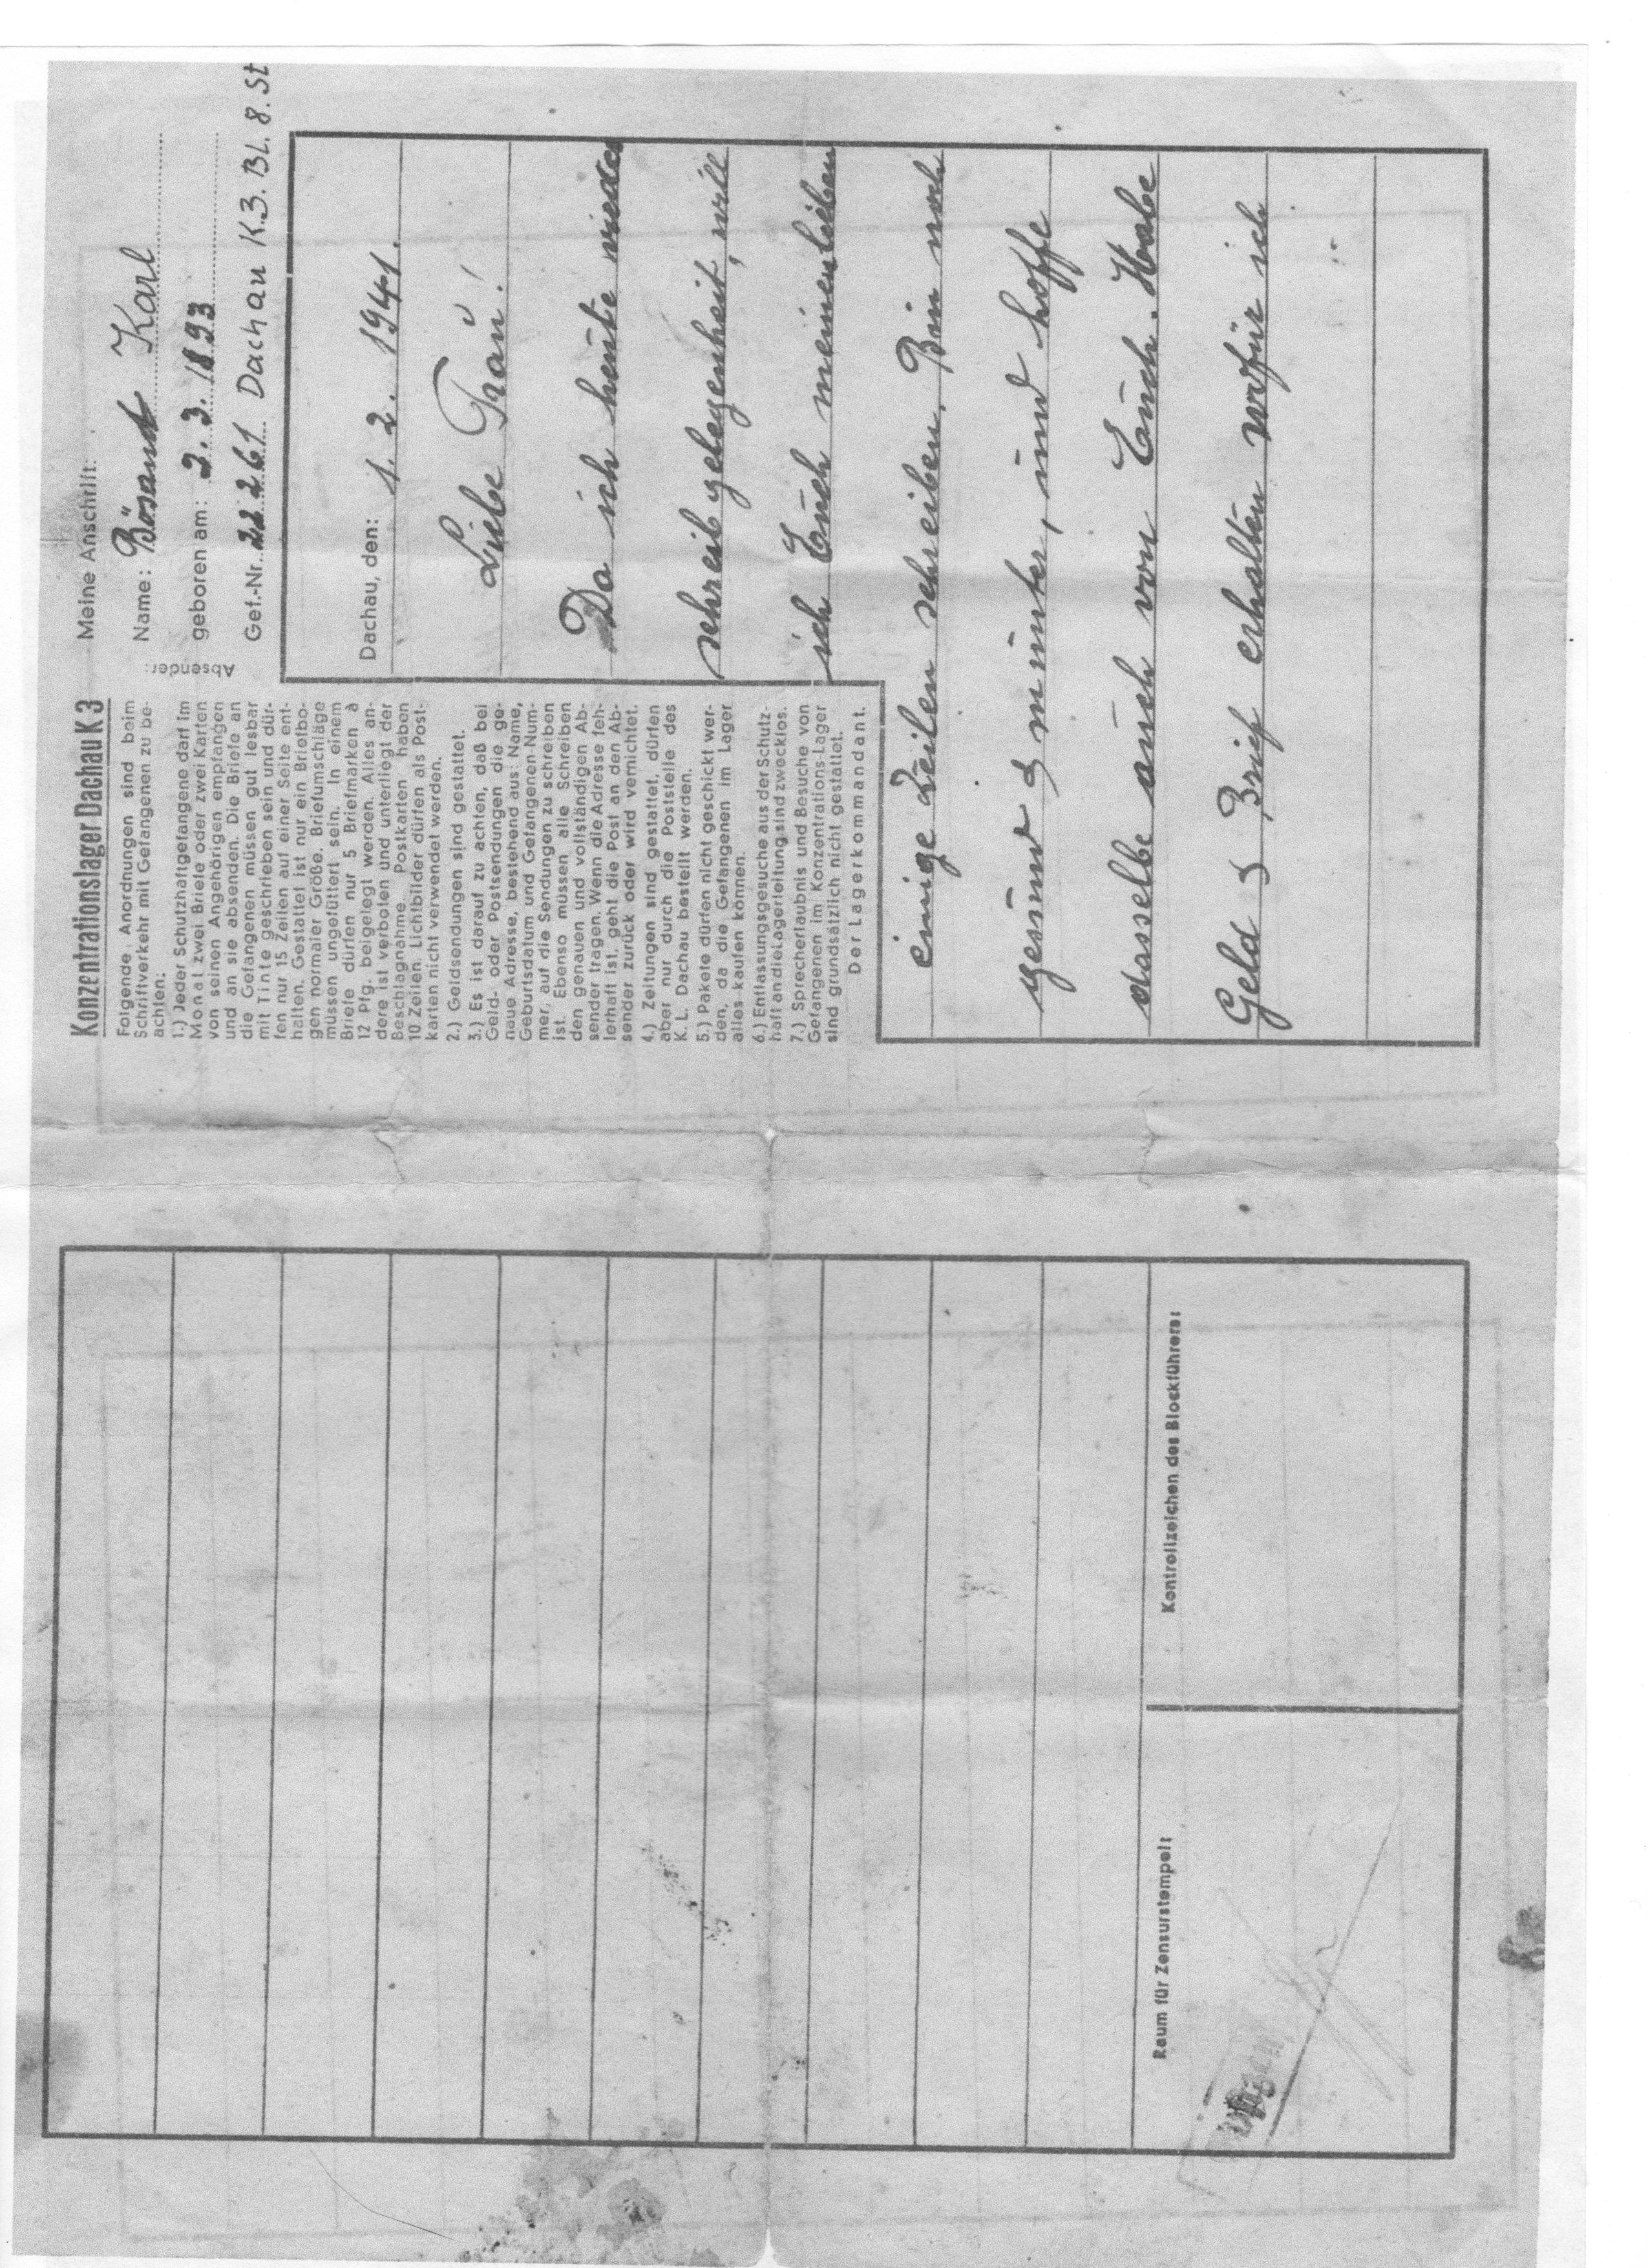 Konzentrationslager Dachau K 3
Folgende Anordnungen sind beim
Schriftverkehr mit Gefangenen zu be-
achten:
1.) Jeder Schutzhaftgefangene darf im
Monat zwei Briefe oder zwei Karten
von seinen Angehörigen empfangen
und an sie absenden. Die Briefe an
die Gefangenen müssen gut lesbar
mit Tinte geschrieben sein und dür-
fen nur 15 Zeilen auf einer Seite ent-
halten. Gestattet ist nur ein Briefbo-
gen normaler Größe. Briefumschläge
müssen ungefüttert sein. In einem
Briefe dürfen nur 5 Briefmarken à
12 Pfg. beigelegt werden. Alles an-
dere ist verboten und unterliegt der
Beschlagnahme. Postkarten haben
10 Zeilen. Lichtbilder dürfen als Post-
karten nicht verwendet werden.
2.) Geldsendungen sind gestattet.
3.) Es ist darauf zu achten, daß bei
Geld- oder Postsendungen die ge-
naue Adresse, bestehend aus: Name,
Geburtsdatum und Gefangenen-Num-
mer, auf die Sendungen zu schreiben
ist. Ebenso müssen alle Schreiben
den genauen und vollständigen Ab-
sender tragen. Wenn die Adresse feh-
lerhaft ist, geht die Post an den Ab-
sender zurück oder wird vernichtet.
4.) Zeitungen sind gestattet, dürfen
aber nur durch die Poststelle des
K. L. Dachau bestellt werden.
5.) Pakete dürfen nicht geschickt wer-
den, da die Gefangenen im Lager
alles kaufen können.
6.) Entlassungsgesuche aus der Schutz-
haft an die Lagerleitung sind zwecklos.
7.) Sprecherlaubnis und Besuche von
Gefangenen im Konzentrations-Lager
sind grundsätzlich nicht gestattet.
Der Lagerkommandant.
Absender:
Meine Anschrift:
Name: Bösandt Karl
geboren am: 2.3.1893
Gef.-Nr. 22261 Dachau K.3. BL. 8. St
Dachau, den: 1. 2. 1941.
Liebe Frau!
Da ich heute wieder
schreib gelegenheit, will
ich Euch meinen lieben
einige Zeilen schreiben. Bin noch
gesund & munter, und hoffe
dasselbe auch von Euch. Habe
Geld & Brief erhalten wofür ich
Raum für Zensurstempel:
Kontrollzeichen des Blockführers: